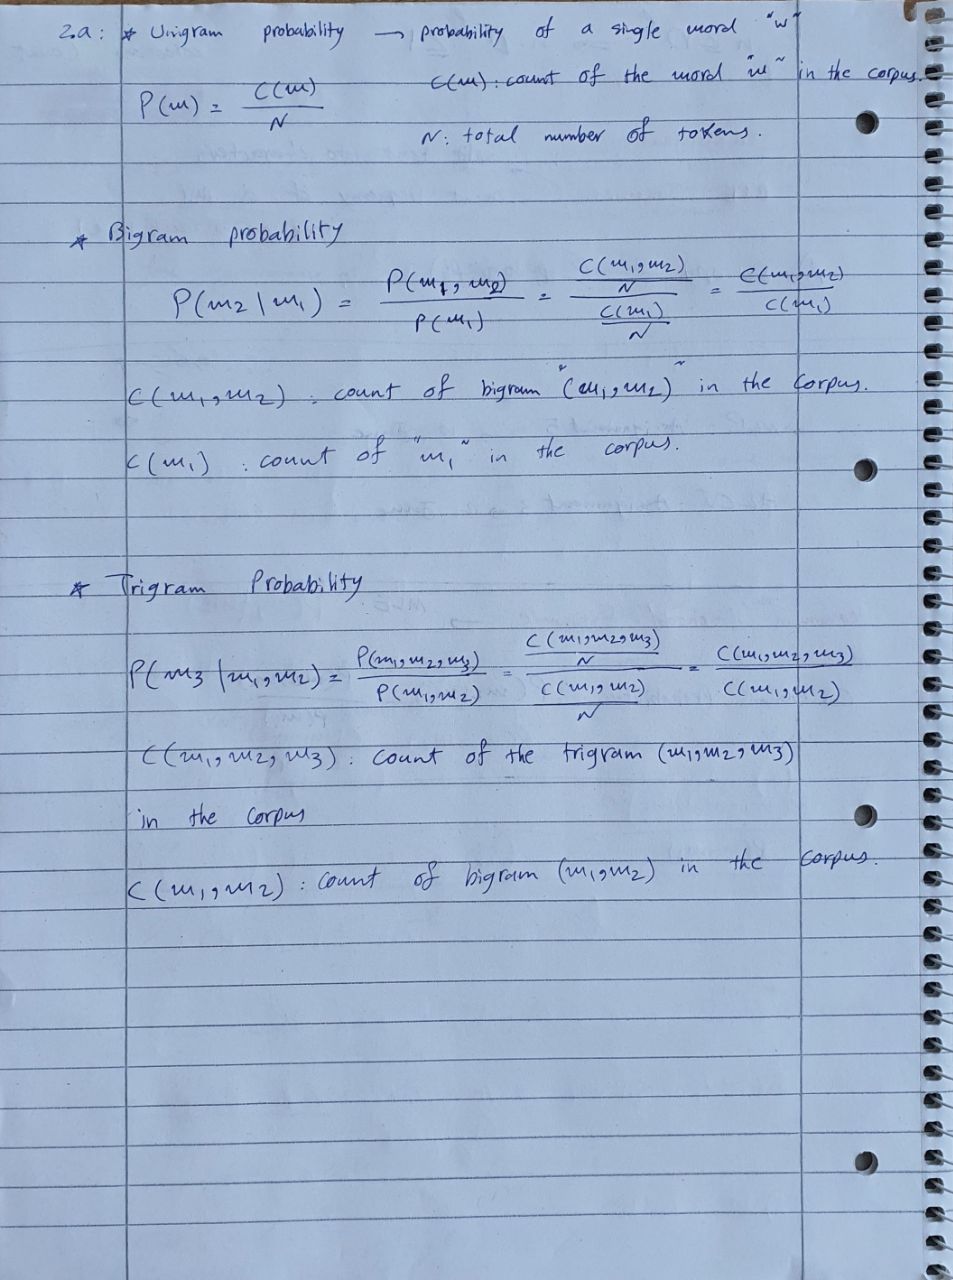 2.a: * Unigram probability → probability of a single word "w"
P(w) = C(w) / N
C(w): count of the word "w" in the corpus.
N: total number of tokens.
* Bigram probability
P(w2 | w1) = P(w1, w2) / P(w1) = (C(w1, w2) / N) / (C(w1) / N) = C(w1, w2) / C(w1)
C(w1, w2) : count of bigram "(w1, w2)" in the corpus.
C(w1) : count of "w1" in the corpus.
* Trigram Probability
P(w3 | w1, w2) = P(w1, w2, w3) / P(w1, w2) = (C(w1, w2, w3) / N) / (C(w1, w2) / N) = C(w1, w2, w3) / C(w1, w2)
C(w1, w2, w3) : count of the trigram (w1, w2, w3)
in the corpus
C(w1, w2) : count of bigram (w1, w2) in the corpus.